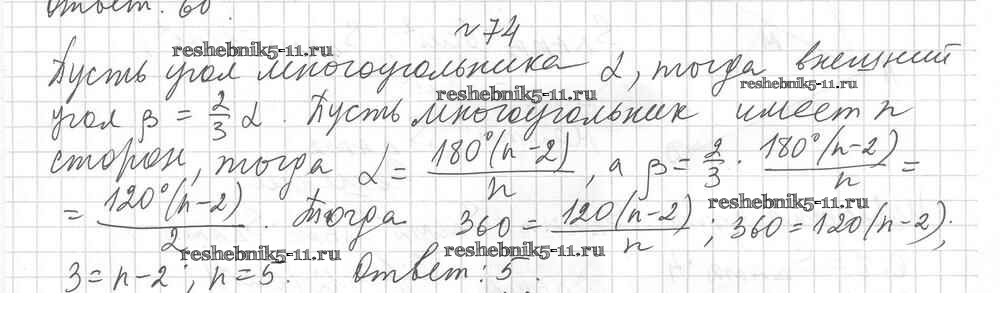 Ответ: 60.
№74
reshebnik5-11.ru
Пусть угол многоугольника α, тогда внешний
reshebnik5-11.ru reshebnik5-11.ru
угол β = 2/3 α. Пусть многоугольник имеет n
сторон, тогда α = 180°(n-2)/n, а β = 2/3 · 180°(n-2)/n =
reshebnik5-11.ru
= 120°(n-2)/2. Тогда 360 = 120(n-2)/n; 360 = 120(n-2);
reshebnik5-11.ru reshebnik5-11.ru
3 = n-2; n = 5. Ответ: 5.